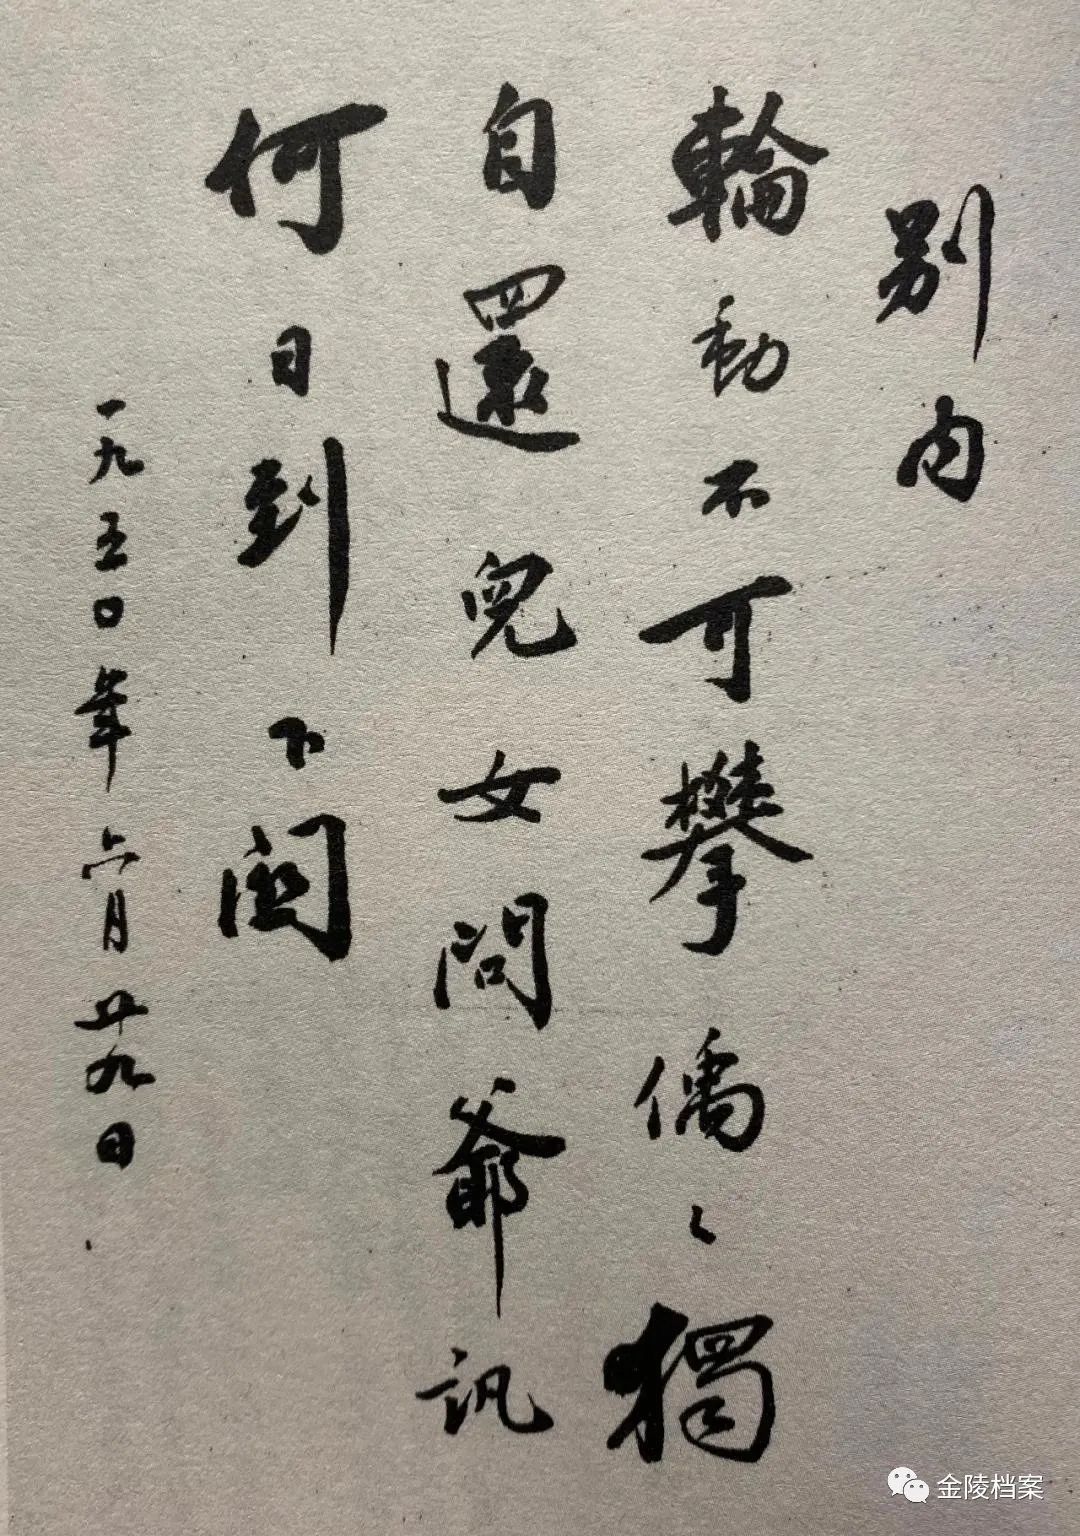 别内
輪動不可攀偊〻獨
自還兒女問爺訊
何日到下関
一九五〇年六月廿九日
金陵档案